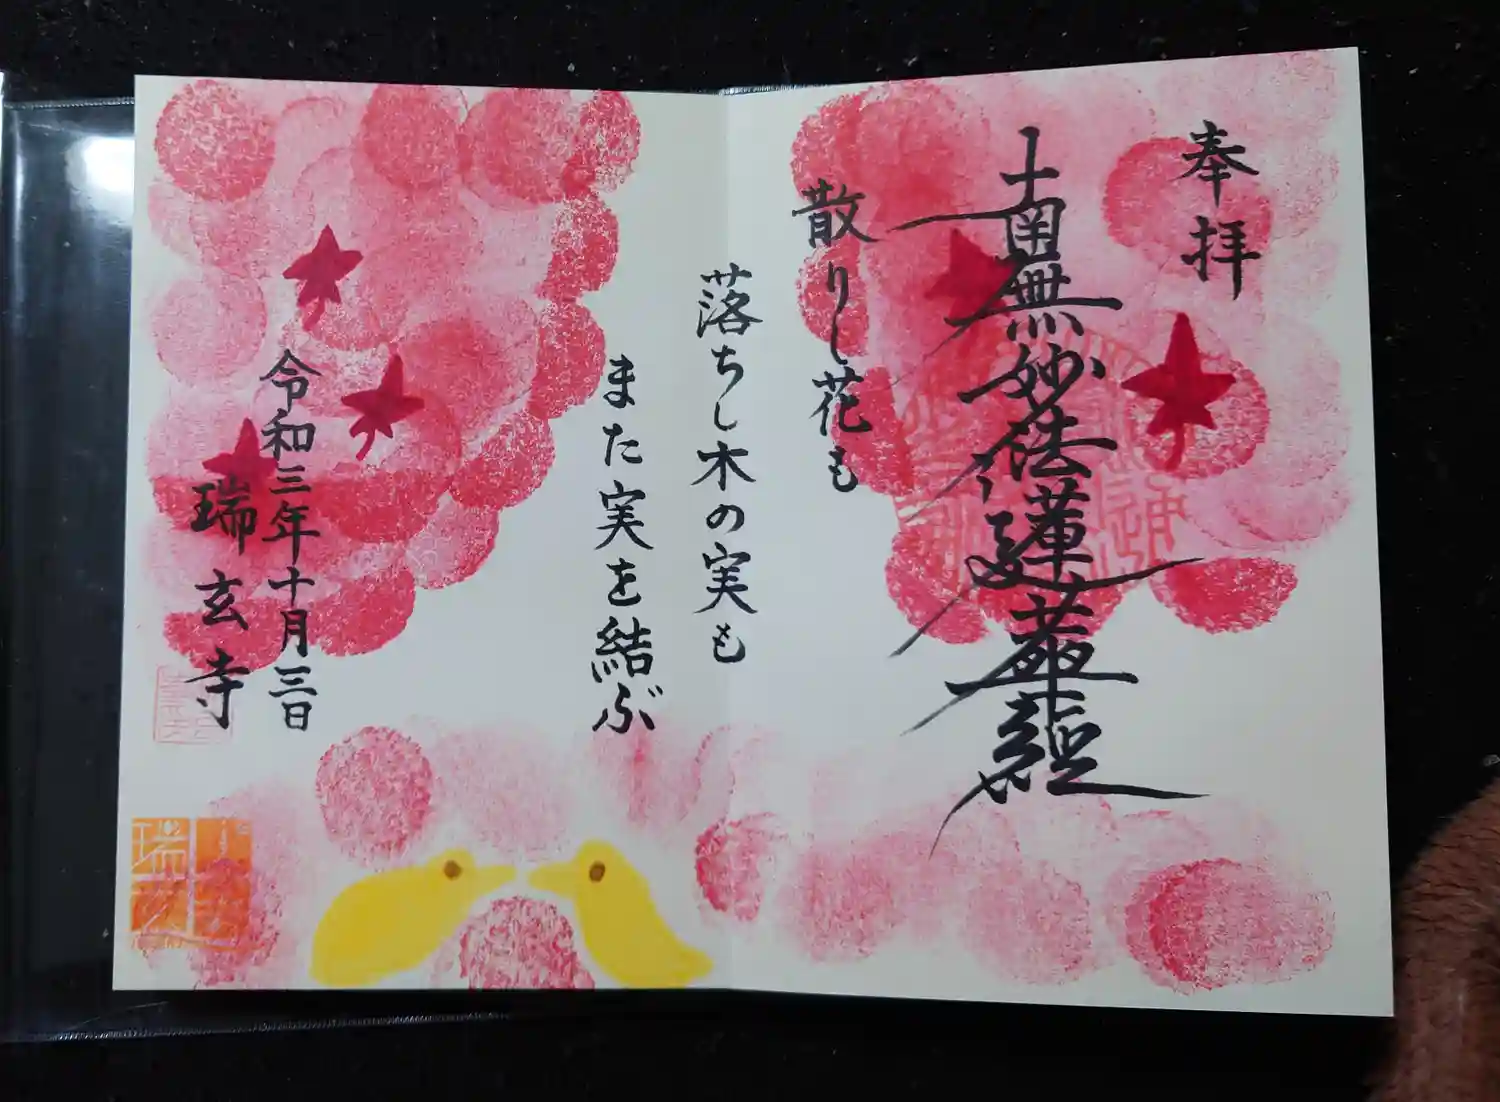 奉拝
南無妙法蓮華經
散りし花も
落ちし木の実も
また実を結ぶ
令和三年十月三日
瑞玄寺